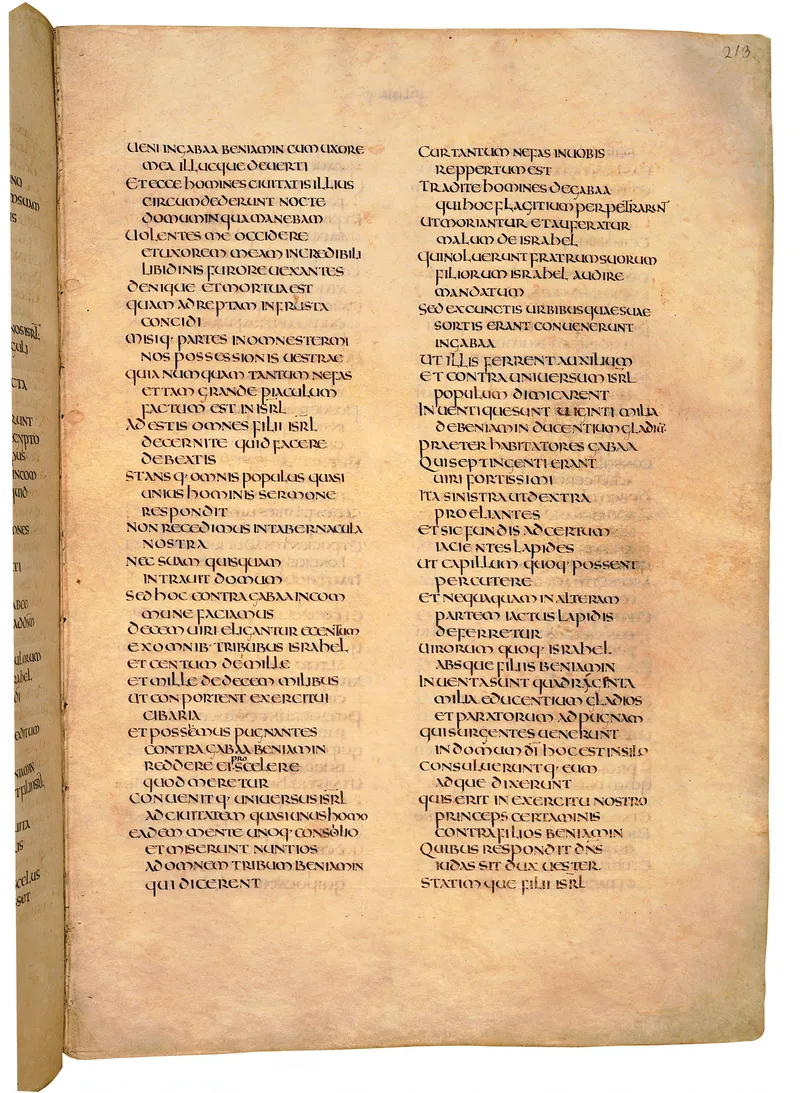 213
UENI INGABAA BENIAMIN CUM UXORE
MEA ILLUCQUE DEUERTI
ET ECCE HOMINES CIUITATIS ILLIUS
CIRCUMDEDERUNT NOCTE
DOMUM IN QUA MANEBAM
UOLENTES ME OCCIDERE
ET UXOREM MEAM INCREDIBILI
LIBIDINIS FURORE UEXANTES
DENIQUE ET MORTUA EST
QUAM ADREPTAM IN FRUSTA
CONCIDI
MISIQ· PARTES IN OMNES TERMI
NOS POSSESSIONIS UESTRAE
QUIA NUMQUAM TANTUM NEFAS
ET TAM GRANDE PIACULUM
FACTUM EST IN ISRL
ADESTIS OMNES FILII ISRL
DECERNITE QUID FACERE
DEBEATIS
STANSQ· OMNIS POPULUS QUASI
UNIUS HOMINIS SERMONE
RESPONDIT
NON RECEDIMUS IN TABERNACULA
NOSTRA
NEC SUAM QUISQUAM
INTRAUIT DOMUM
SED HOC CONTRA GABAA INCOM
MUNE FACIAMUS
DECEM UIRI ELIGANTUR E CENTUM
EX OMNIB· TRIBUBUS ISRAHEL
ET CENTUM DE MILLE
ET MILLE DE DECEM MILIBUS
UT CONPORTENT EXERCITUI
CIBARIA
ET POSSEMUS PUGNANTES
CONTRA GABAA BENIAMIN
REDDERE EI PRO SCELERE
QUOD MERETUR
CONUENITQ· UNIUERSUS ISRL
AD CIUITATEM QUASI UNUS HOMO
EADEM MENTE UNOQ· CONSILIO
ET MISERUNT NUNTIOS
AD OMNEM TRIBUM BENIAMIN
QUI DICERENT
CUR TANTUM NEFAS IN UOBIS
REPPERTUM EST
TRADITE HOMINES DE GABAA
QUI HOC FLAGITIUM PERPETRARUNT
UT MORIANTUR ET AUFERATUR
MALUM DE ISRAHEL
QUI NOLUERUNT FRATRUM SUORUM
FILIORUM ISRAHEL AUDIRE
MANDATUM
SED EX CUNCTIS URBIBUS QUAE SUAE
SORTIS ERANT CONUENERUNT
IN GABAA
UT ILLIS FERRENT AUXILIUM
ET CONTRA UNIUERSUM ISRL
POPULUM DIMICARENT
INUENTIQUE SUNT UIGINTI MILIA
DE BENIAMIN DUCENTIUM GLADIŪ·
PRAETER HABITATORES GABAA
QUI SEPTINGENTI ERANT
UIRI FORTISSIMI
ITA SINISTRA UT DEXTRA
PROELIANTES
ET SIC FUNDIS AD CERTUM
IACIENTES LAPIDES
UT CAPILLUM QUOQ· POSSENT
PERCUTERE
ET NEQUAQUAM IN ALTERAM
PARTEM IACTUS LAPIDIS
DEFERRETUR
UIRORUM QUOQ· ISRAHEL
ABSQUE FILIIS BENIAMIN
INUENTA SUNT QUADRAGINTA
MILIA EDUCENTIUM GLADIOS
ET PARATORUM AD PUGNAM
QUI SURGENTES UENERUNT
IN DOMUM DI HOC EST IN SILO
CONSULUERUNTQ· EUM
ADQUE DIXERUNT
QUIS ERIT IN EXERCITU NOSTRO
PRINCEPS CERTAMINIS
CONTRA FILIOS BENIAMIN
QUIBUS RESPONDIT DN̄S
IUDAS SIT DUX UESTER
STATIMQUE FILII ISRL